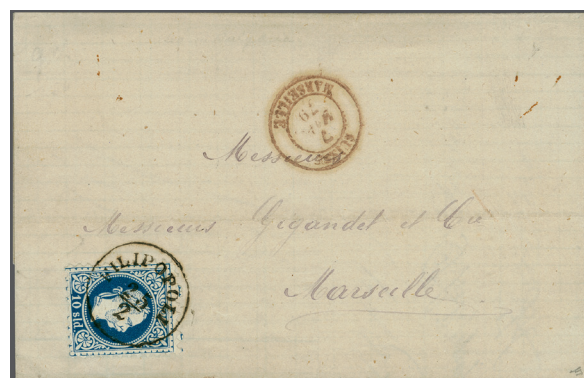 MARSEILLE
Messieurs
Messieurs Gigandet et Cie
Marseille
FILIPOPOLI
10 sld